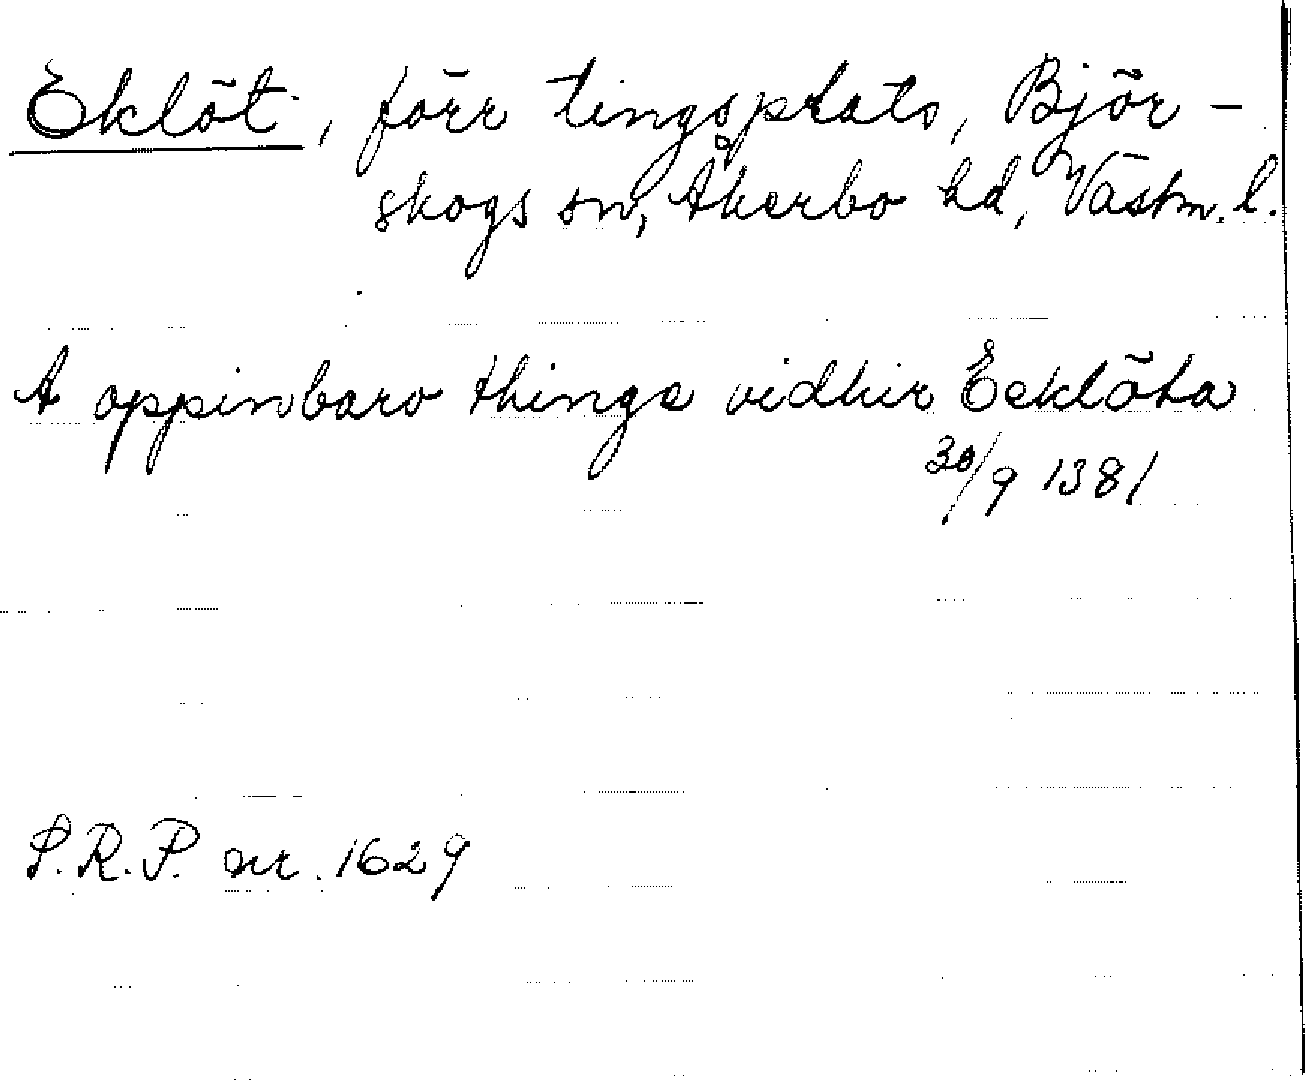 Eklöt, förr tingsplats, Björ-
skogs sn, Åkerbo hd, Västm. l.
A oppinbaro thinge vidhir Eeklöta
30/9 1381
S.R.P. nr. 1629